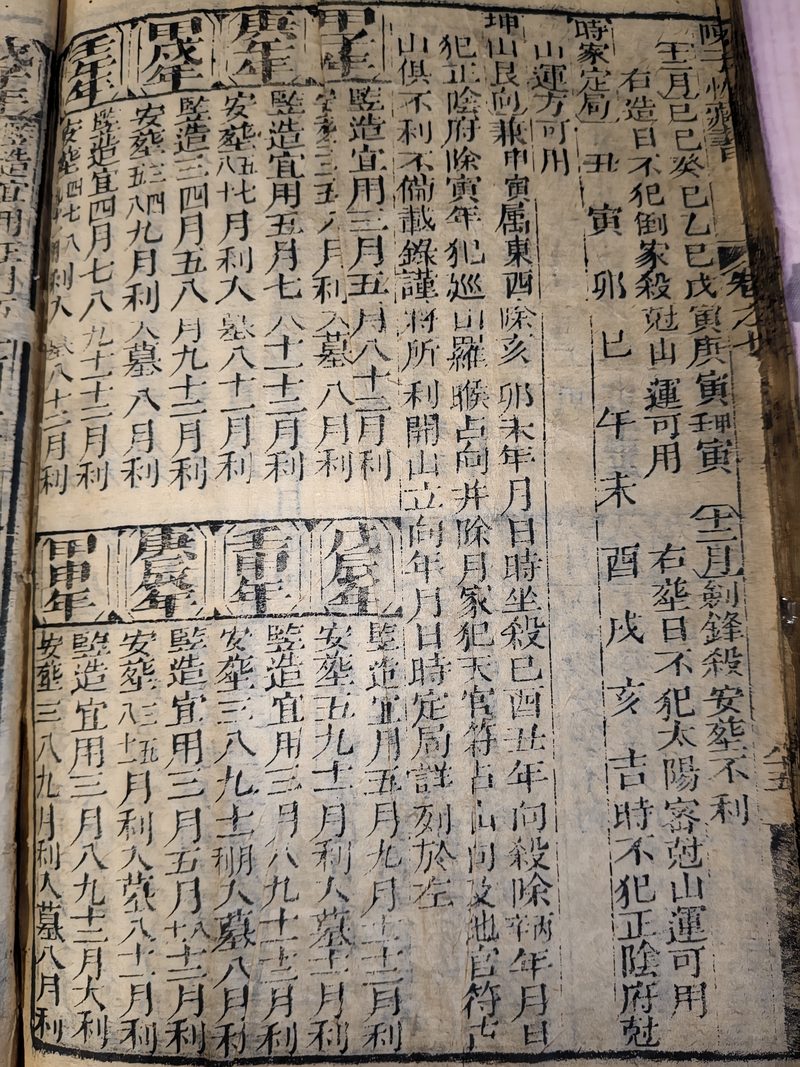 卷之七
八十五
壬月 己巳癸巳乙巳戊寅庚寅壬寅 十二月 劍鋒殺安葬不利
右造日不犯倒家殺尅山運可用 右葬日不犯太陽審尅山運可用
時家定局 丑寅卯巳午未酉戌亥吉時不犯正陰府尅
山運方可用
坤山艮向兼申寅属東西除亥卯未年月日時坐殺巳酉丑年向殺除丙辛年月日
犯正陰府除寅年犯巡山羅睺占向并除月家犯天官符占山向及地官符占
山俱不利不偹載錄謹將所利開山立向年月日時定局詳列於左
甲子年
竪造宜用三月五月八十二月利
安葬三五八月利入墓八月利
庚午年
竪造宜用五月七八十一十二月利
安葬五七八十月利入墓八十一月利
甲戌年
竪造三四月五八月九十二月利
安葬三四五八九月利入墓八月利
壬午年
竪造宜四月七八九十一十二月利
安葬四七八月利入墓八十二月利
戊辰年
竪造宜用五月九月十二月利
安葬五九十一月利入墓十一月利
壬申年
竪造宜用三月八九十一十二月利
安葬三八九十一月利入墓八月利
庚辰年
竪造宜用三月五月八十十二月利
安葬三五八十一月利入墓八十一月利
甲申年
竪造宜用三月八九十二月大利
安葬三八九月利入墓八月利